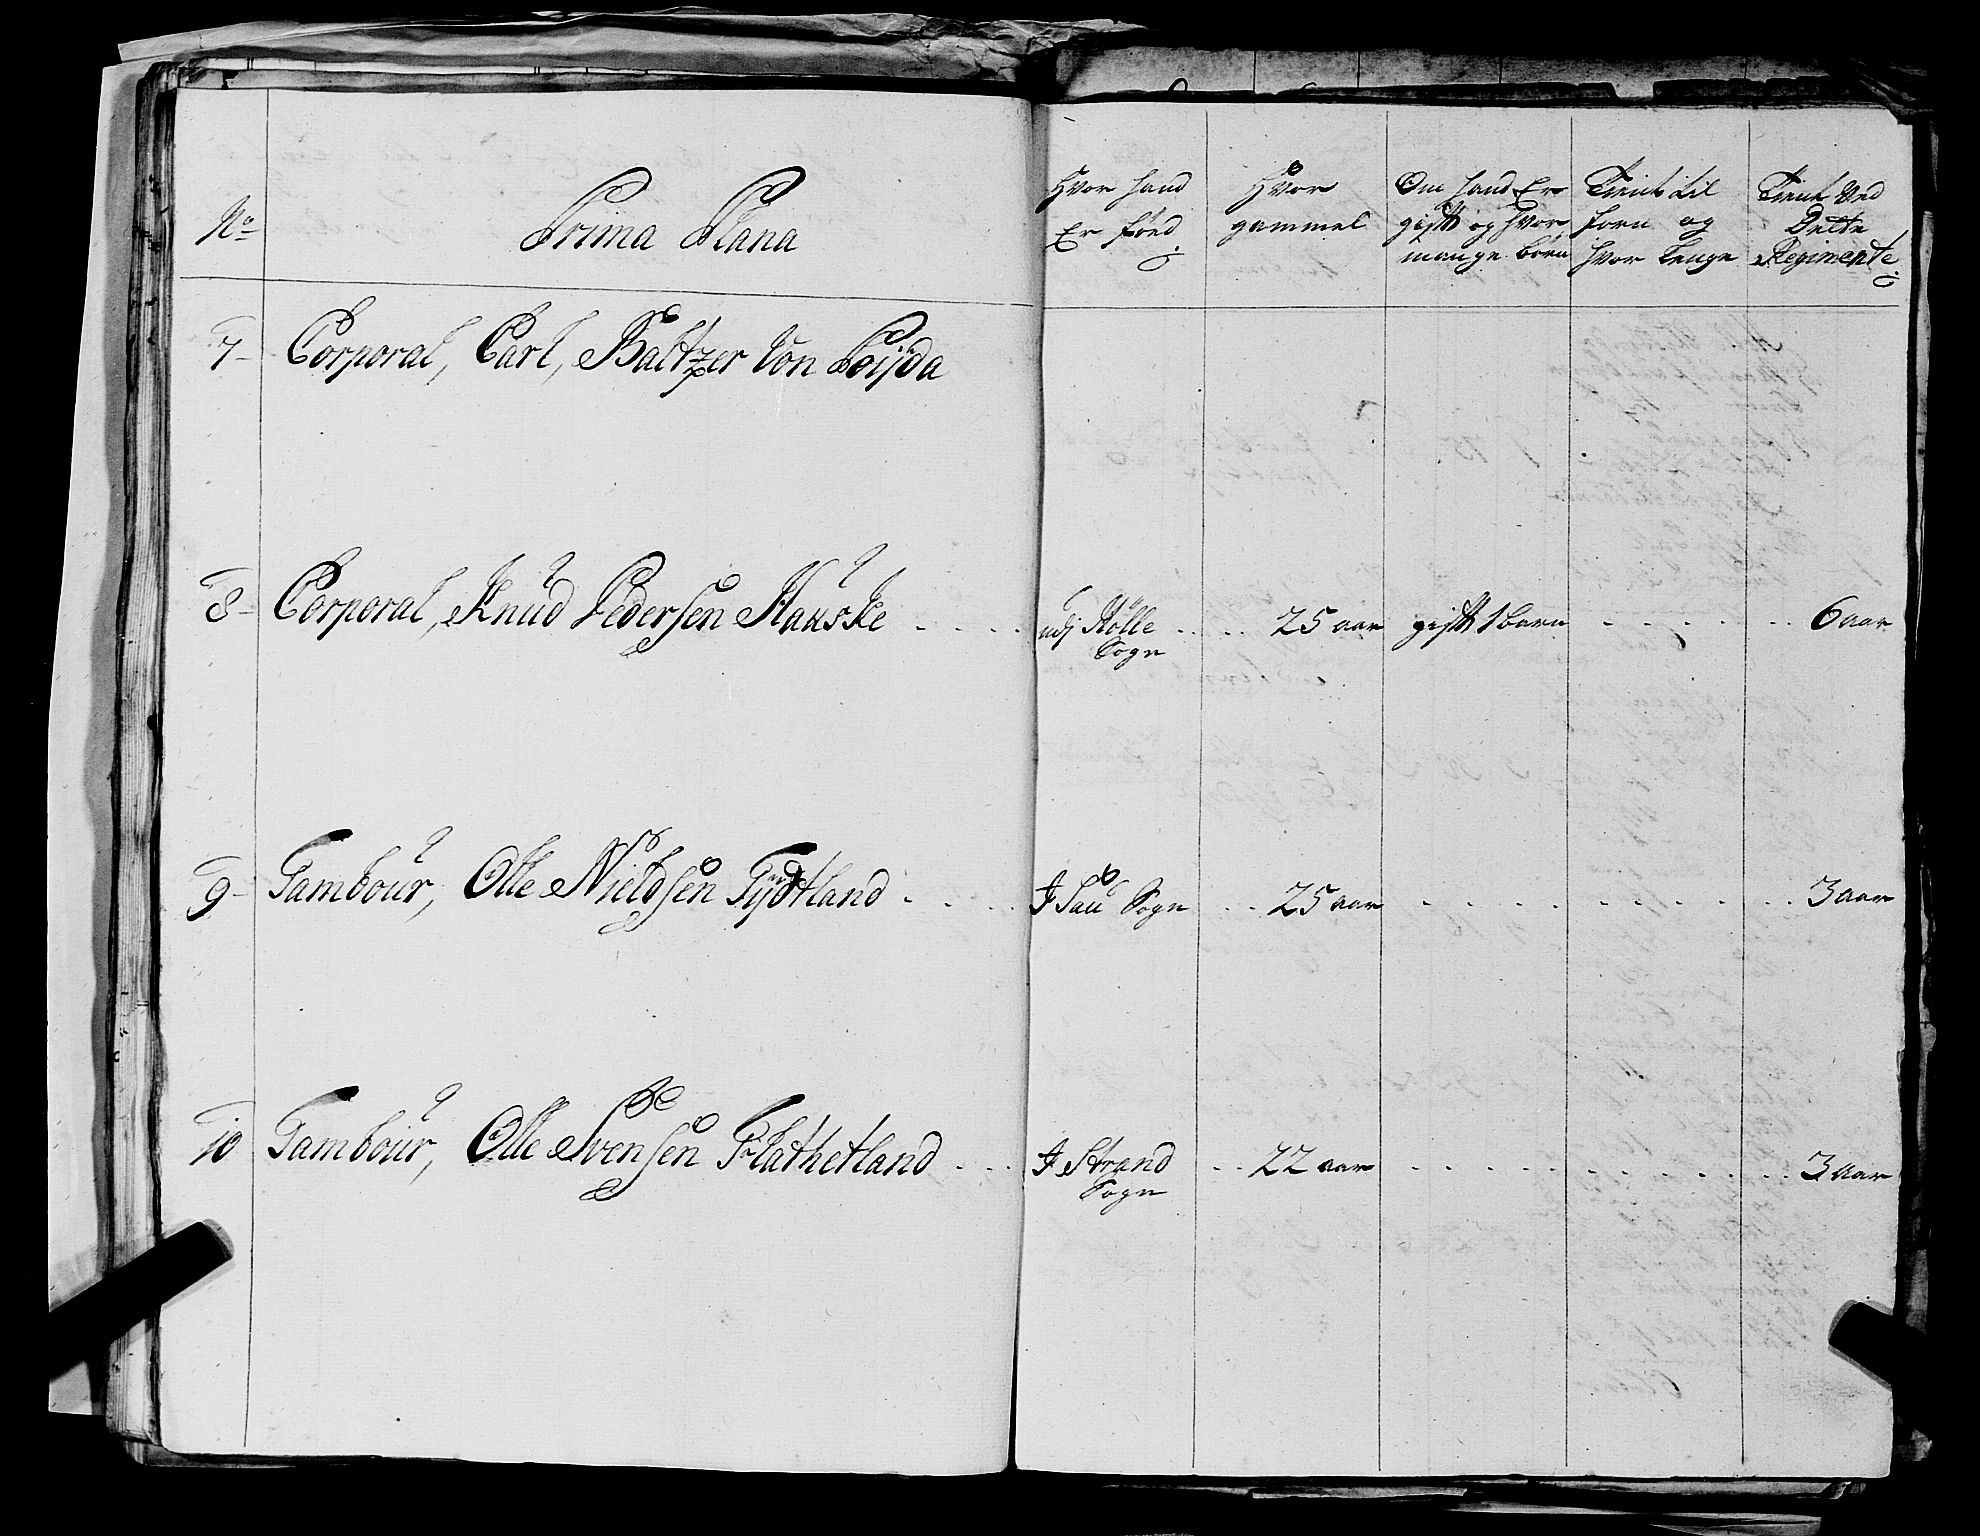 No Prima Plana
Hvor hand Er föed
Hvor gammel
Om hand Er gifft og hvor mange börn
Tient til forn og hvor Lenge
Tient Ved Dette Regimente
7 Corporal, Carl, Baltzer Von
8 Corporal, Knud Pedersen Hauske . . . . udj Hölle Sogn . . . . 25 aar gifft 1 barn . . . . . . 6 aar
9 Tambour, Olle Nieldsen Tydtland . . . . J Sau Sogn . . 25 aar . . . . . . . . 3 aar
10 Tambour, Olle Svensen Flathetland . . . J Strand Sogn . . 22 aar . . . . . . . . 3 aar